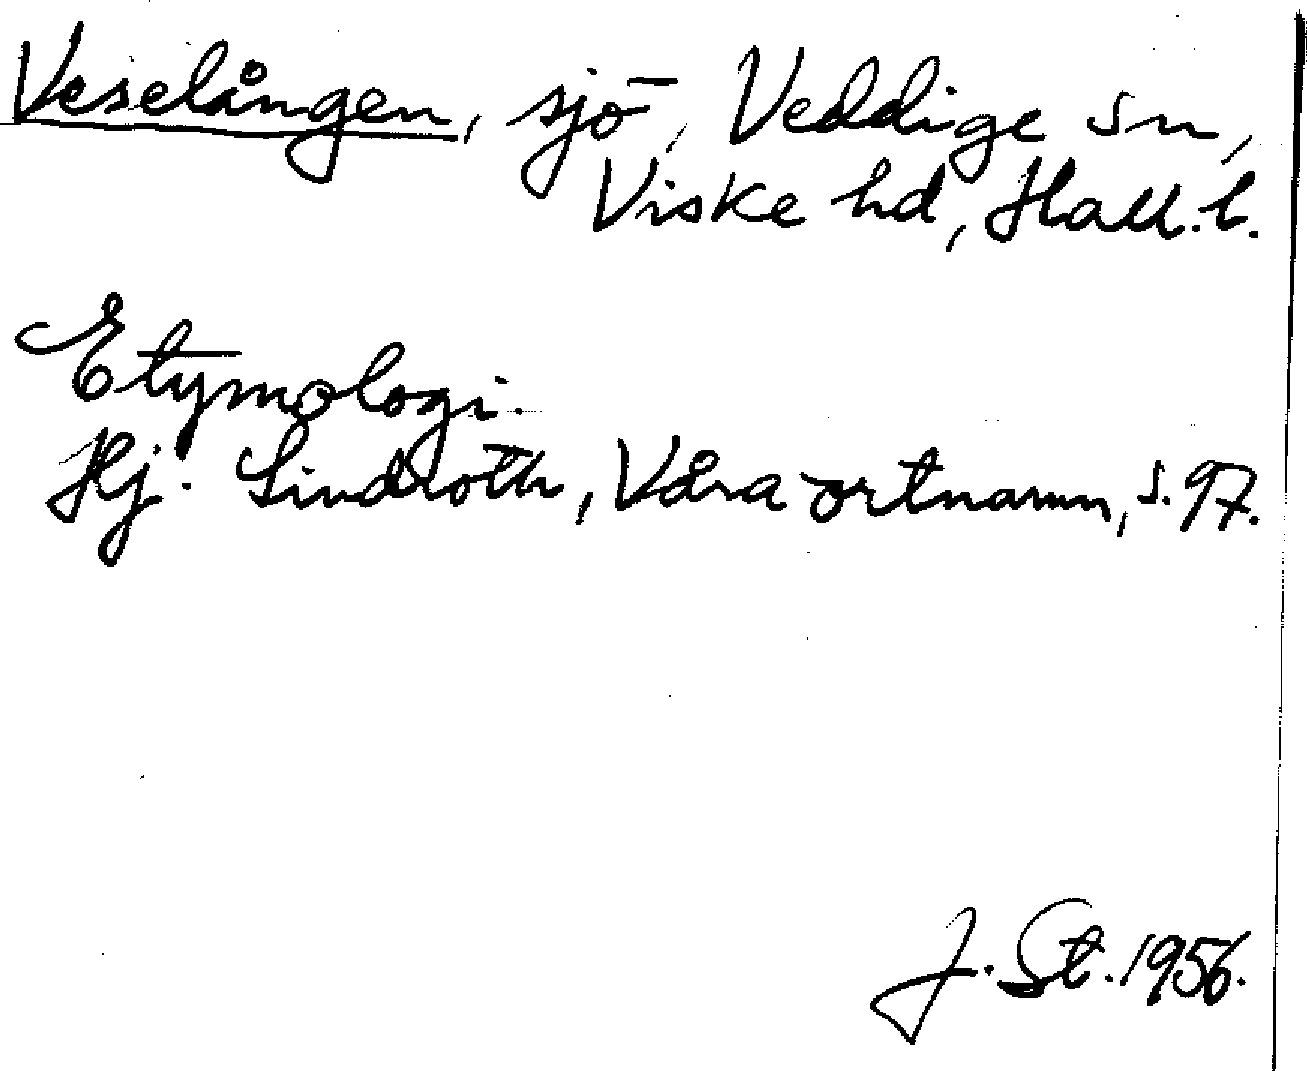 Veselången, sjö, Veddige sn,
Viske hd, Hall. l.
Etymologi.
Hj. Lindroth, Våra ortnamn, s. 97.
J. St. 1956.